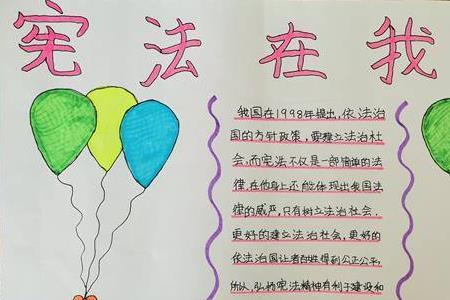 宪法在我
我国在1998年提出,依法治
国的方针政策,要建立法治社
会,而宪法不仅是一部简单的法
律,在他身上还能体现出我国法
律的威严,只有树立法治社会,
更好的建立法治社会,更好的
依法治国让老百姓得到公正公平,
所以,弘扬宪法精神有利于建设和